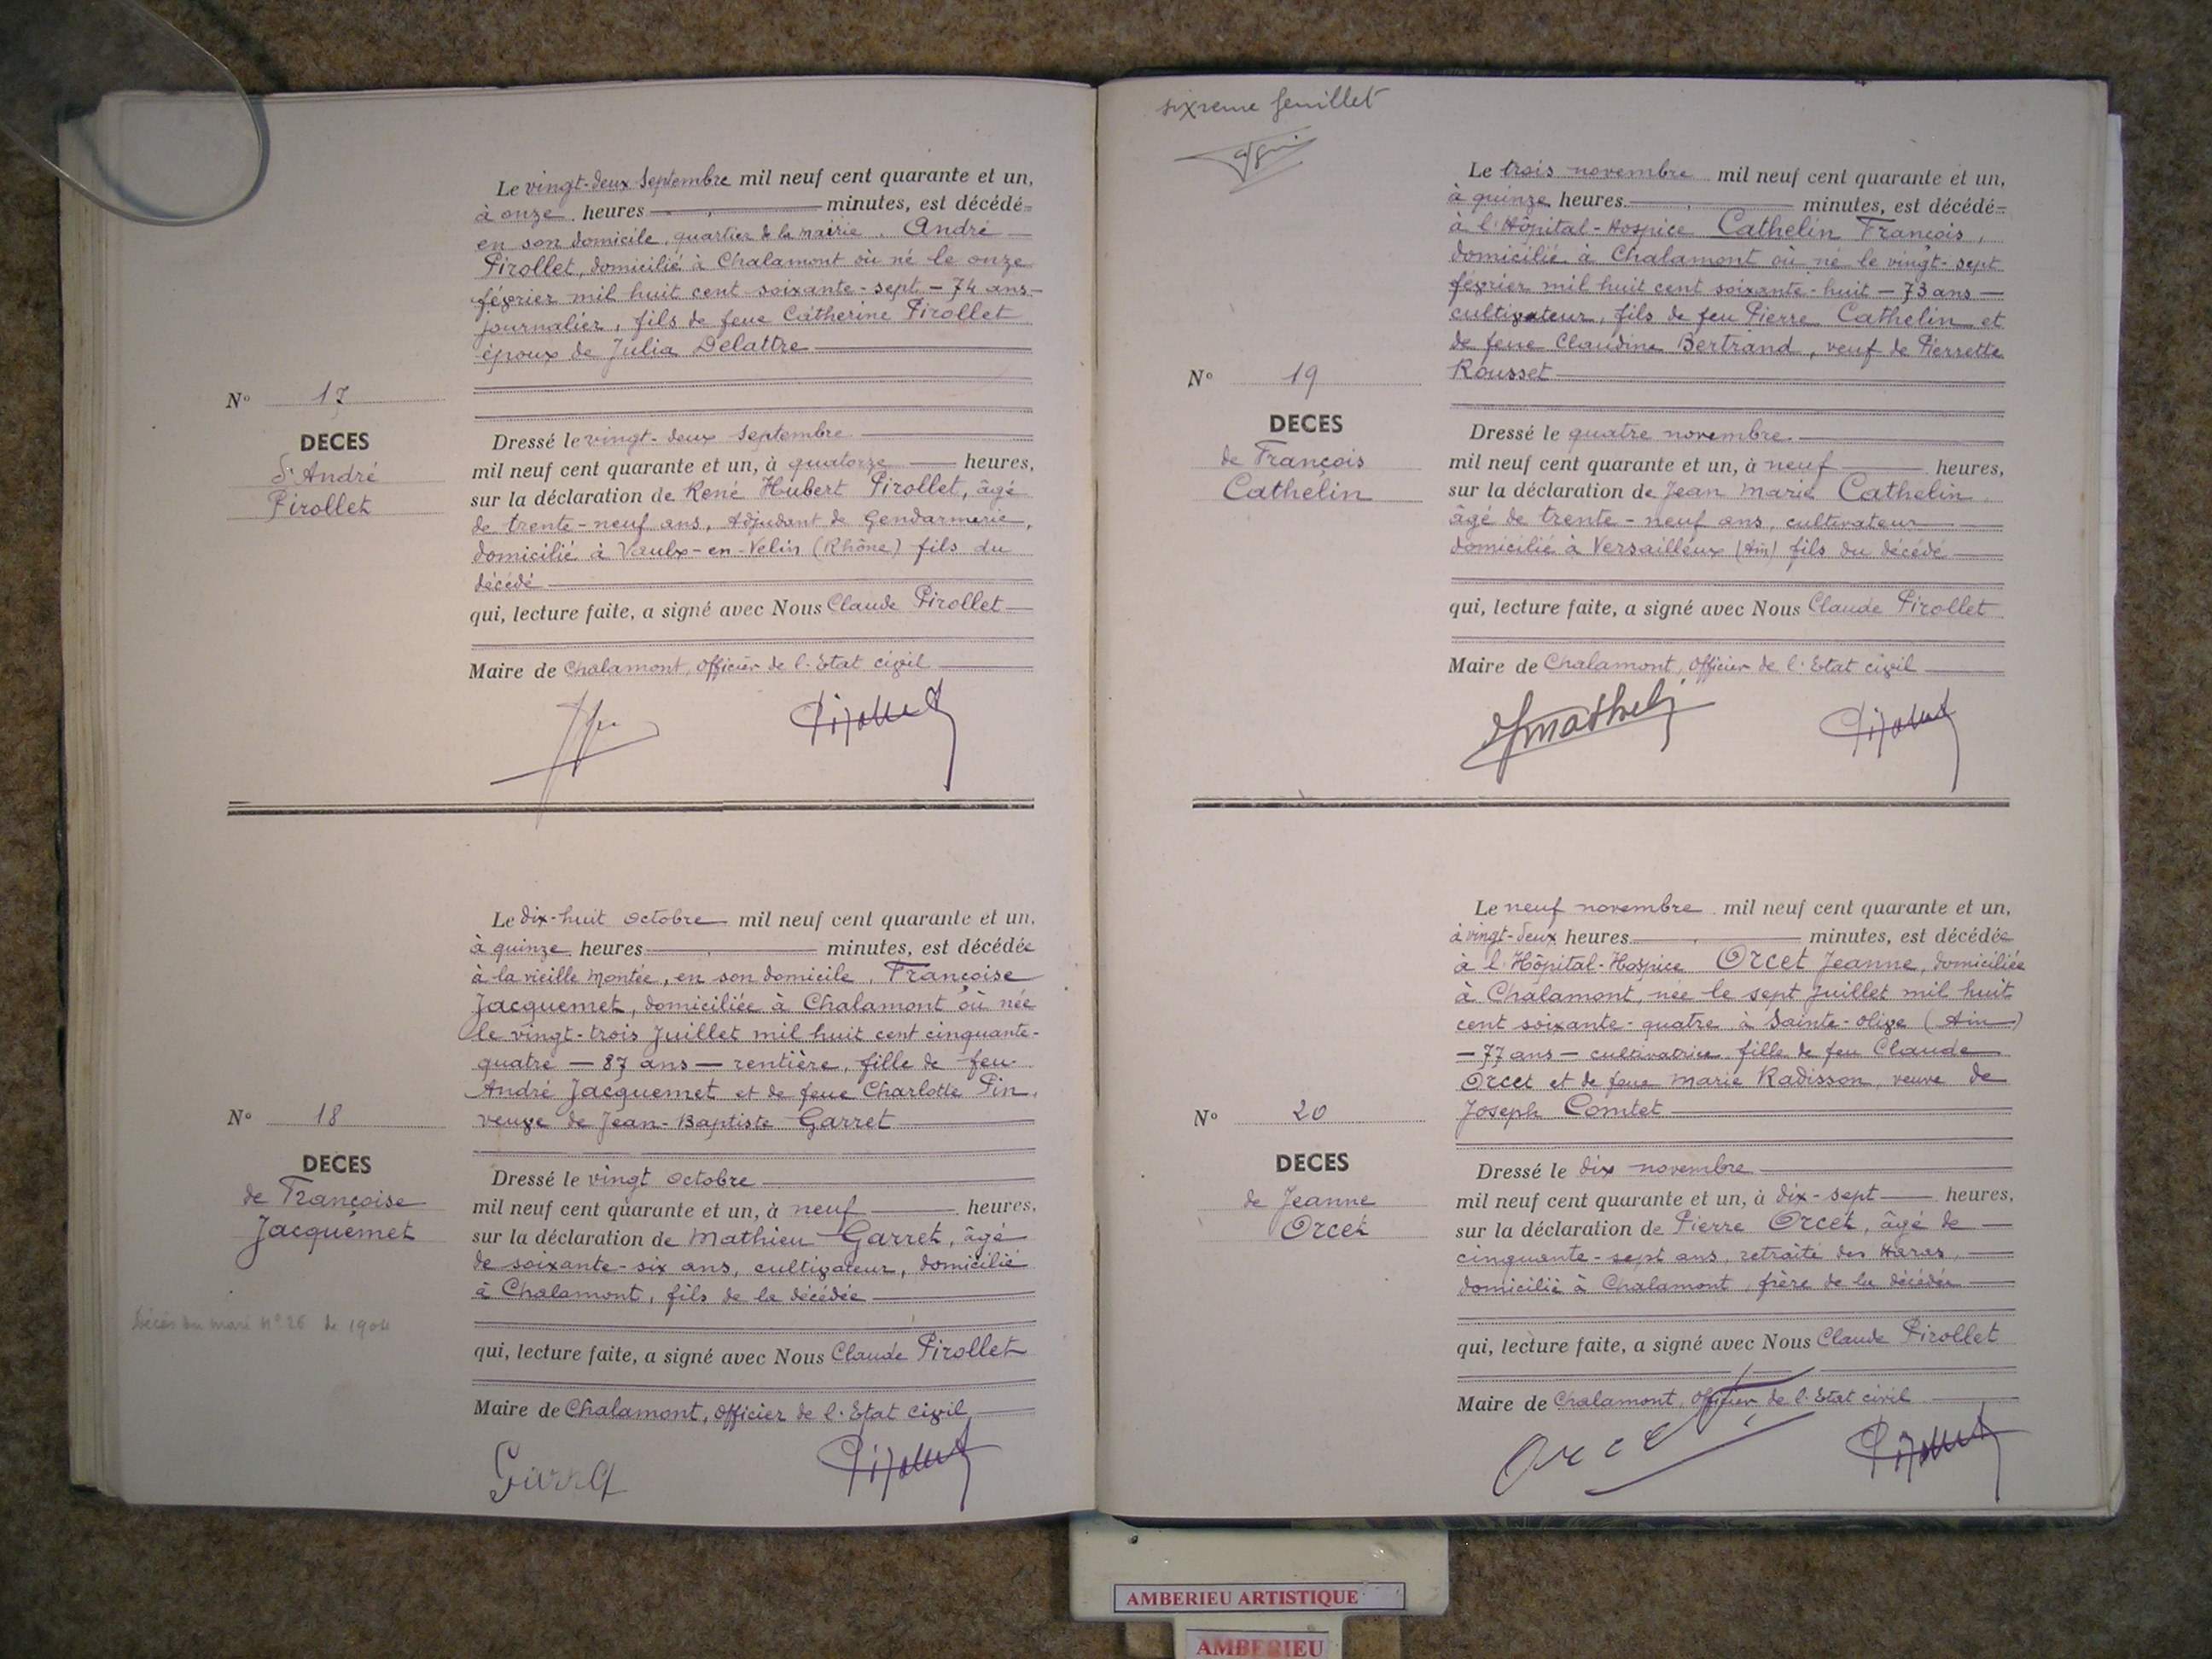 Le vingt-deux Septembre mil neuf cent quarante et un,
à onze heures minutes, est décédé
en son domicile, quartier de la mairie, André
Pirollet, domicilié à Chalamont où né le onze
février mil huit cent soixante-sept - 74 ans -
journalier, fils de feue Catherine Pirollet
époux de Julia Delattre
N° 17
DECES
d'André
Pirollet
Dressé le vingt-deux Septembre
mil neuf cent quarante et un, à quatorze heures,
sur la déclaration de René Hubert Pirollet, âgé
de trente-neuf ans, Adjudant de Gendarmerie,
domicilié à Vaulx-en-Velin (Rhône) fils du
décédé
qui, lecture faite, a signé avec Nous Claude Pirollet
Maire de Chalamont, Officier de l'Etat civil
Le dix-huit octobre mil neuf cent quarante et un,
à quinze heures minutes, est décédée
à la vieille montée, en son domicile, Françoise
Jacquemet, domiciliée à Chalamont où née
le vingt-trois Juillet mil huit cent cinquante-
quatre - 87 ans - rentière, fille de feu
André Jacquemet et de feue Charlotte Pin,
veuve de Jean-Baptiste Garret
N° 18
DECES
de Françoise
Jacquemet
Décès du mari N° 26 de 1904
Dressé le vingt octobre
mil neuf cent quarante et un, à neuf heures,
sur la déclaration de Mathieu Garret, âgé
de soixante-six ans, cultivateur, domicilié
à Chalamont, fils de la décédée
qui, lecture faite, a signé avec Nous Claude Pirollet
Maire de Chalamont, Officier de l'Etat civil
sixieme feuillet
Le trois novembre mil neuf cent quarante et un,
à quinze heures minutes, est décédé
à l'Hôpital-Hospice Cathelin François,
domicilié à Chalamont où né le vingt-sept
février mil huit cent soixante-huit - 73 ans -
cultivateur, fils de feu Pierre Cathelin et
de feue Claudine Bertrand, veuf de Pierrette
Rousset
N° 19
DECES
de François
Cathelin
Dressé le quatre novembre
mil neuf cent quarante et un, à neuf heures,
sur la déclaration de Jean Marie Cathelin
âgé de trente-neuf ans, cultivateur
domicilié à Versailleux (Ain) fils du décédé
qui, lecture faite, a signé avec Nous Claude Pirollet
Maire de Chalamont, Officier de l'Etat civil
Le neuf novembre mil neuf cent quarante et un,
à vingt-deux heures minutes, est décédée
à l'Hôpital-Hospice Orcet Jeanne, domiciliée
à Chalamont, née le sept Juillet mil huit
cent soixante-quatre à Sainte-Olive (Ain)
- 77 ans - cultivatrice, fille de feu Claude
Orcet et de feue Marie Radisson, veuve de
Joseph Comtet
N° 20
DECES
de Jeanne
Orcet
Dressé le dix novembre
mil neuf cent quarante et un, à dix-sept heures,
sur la déclaration de Pierre Orcet, âgé de
cinquante-sept ans, retraité des Haras,
domicilié à Chalamont, frère de la décédée
qui, lecture faite, a signé avec Nous Claude Pirollet
Maire de Chalamont, Officier de l'Etat civil
Orcet
AMBERIEU ARTISTIQUE
AMBERIEU